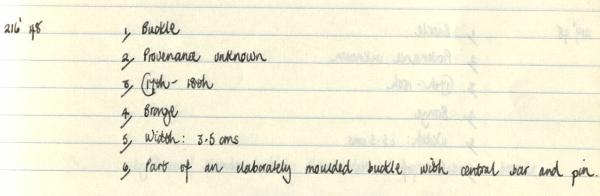 216' 48 1, Buckle
2, Provenance unknown
3, C17th - 18th
4, Bronze
5, Width: 3.5 cms
6, Part of an elaborately moulded buckle with central bar and pin.